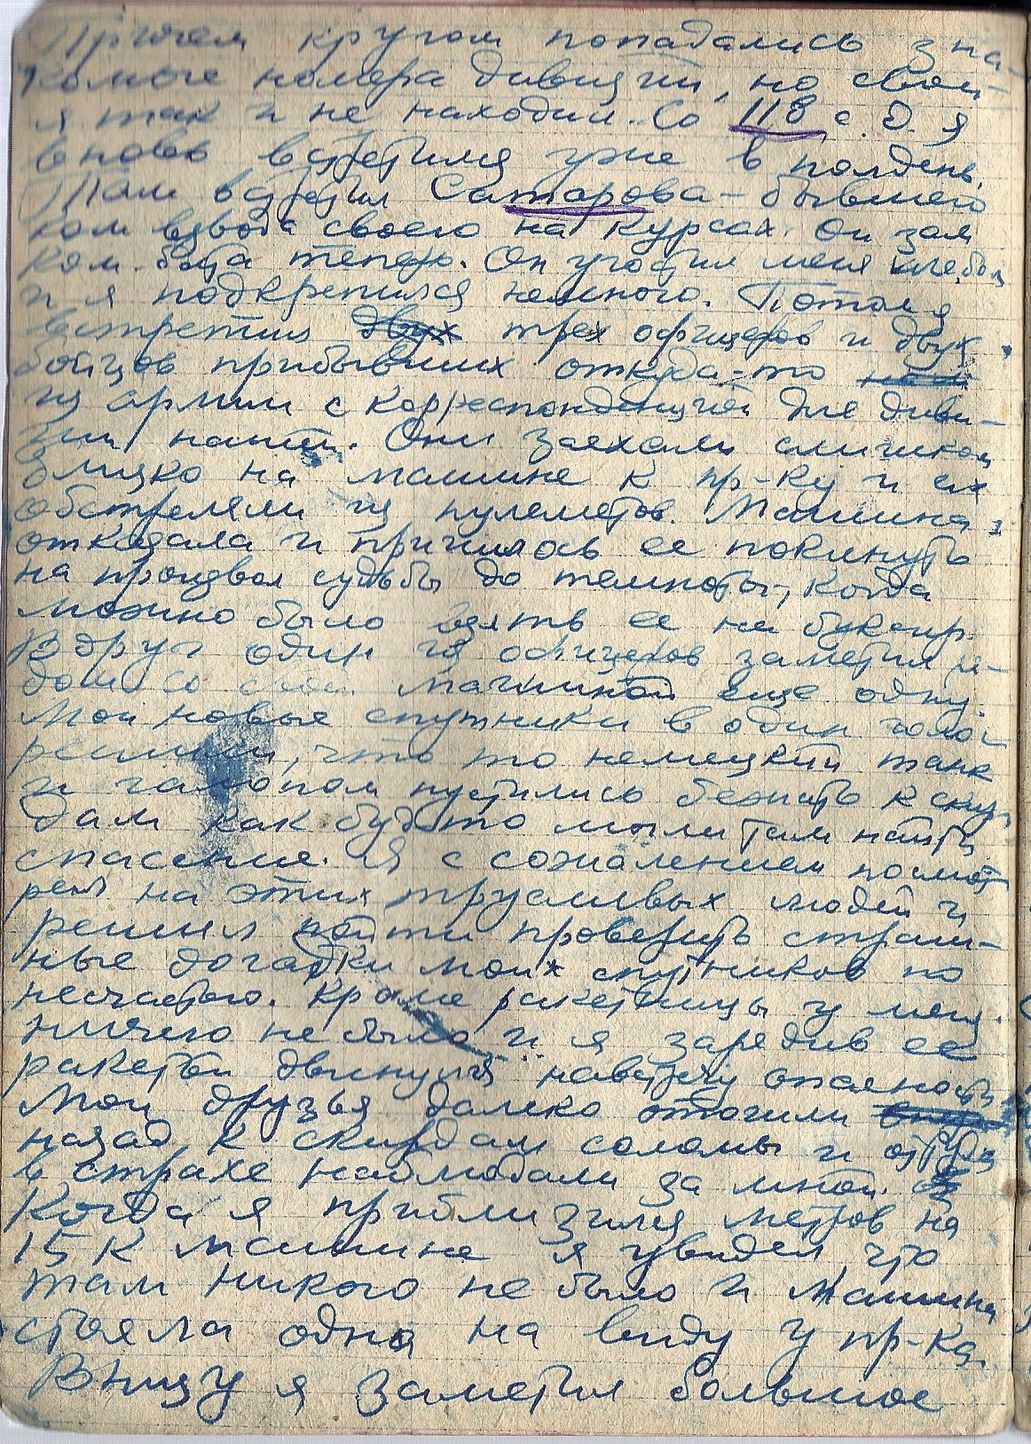 Причем кругом попадались зна-
комые номера дивизий, но своей
я так и не находил. Со 118 с.д. я
вновь встретился уже в полдень.
Там встретил Сатарова - бывшего
ком взвода своего на курсах. Он зам
ком. б-та теперь. Он угостил меня хлебом
и я подкрепился немного. Потом я
встретил двух трех офицеров и двух
бойцов прибывших откуда-то
из армии с корреспонденцией для диви-
зии нашей. Они заехали слишком
близко на машине к пр-ку и их
обстреляли из пулеметов. Машина
отказала и пришлось ее покинуть
на произвол судьбы до темноты, когда
можно было взять ее на буксир.
Вдруг один из офицеров заметил ря-
дом со своей машиной еще одну.
Мои новые спутники в один голос
решили, что то немецкий танк
и галопом пустились бежать к скир-
дам как-будто могли там найти
спасение. Я с сожалением посмот
рел на этих трусливых людей и
решил пойти проверить страш-
ные догадки моих спутников по
несчастью. Кроме ракетницы у меня
ничего не было и я зарядив ее
ракетой двинулся навстречу опасности
Мои друзья далеко отошли
назад к скирдам соломы и оттуда
в страхе наблюдали за мной.
Когда я приблизился метров на
15 к машине я увидел что
там никого не было и машина
стояла одна на виду у пр-ка.
Внизу я заметил большое